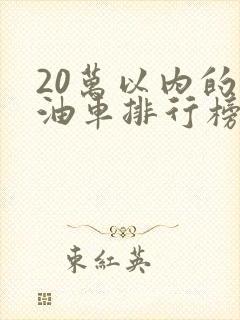 20萬以內的
油車排行榜
東紅英